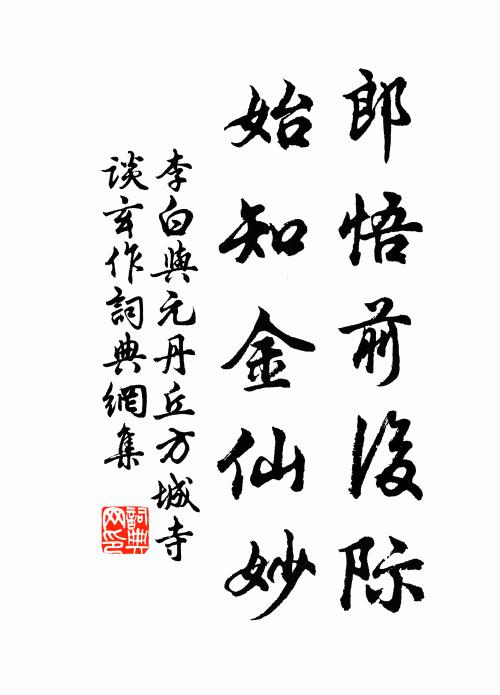 郎悟前後际
始知金仙妙
李白與元丹丘方城寺
談玄作詞典網集
詞典
网印